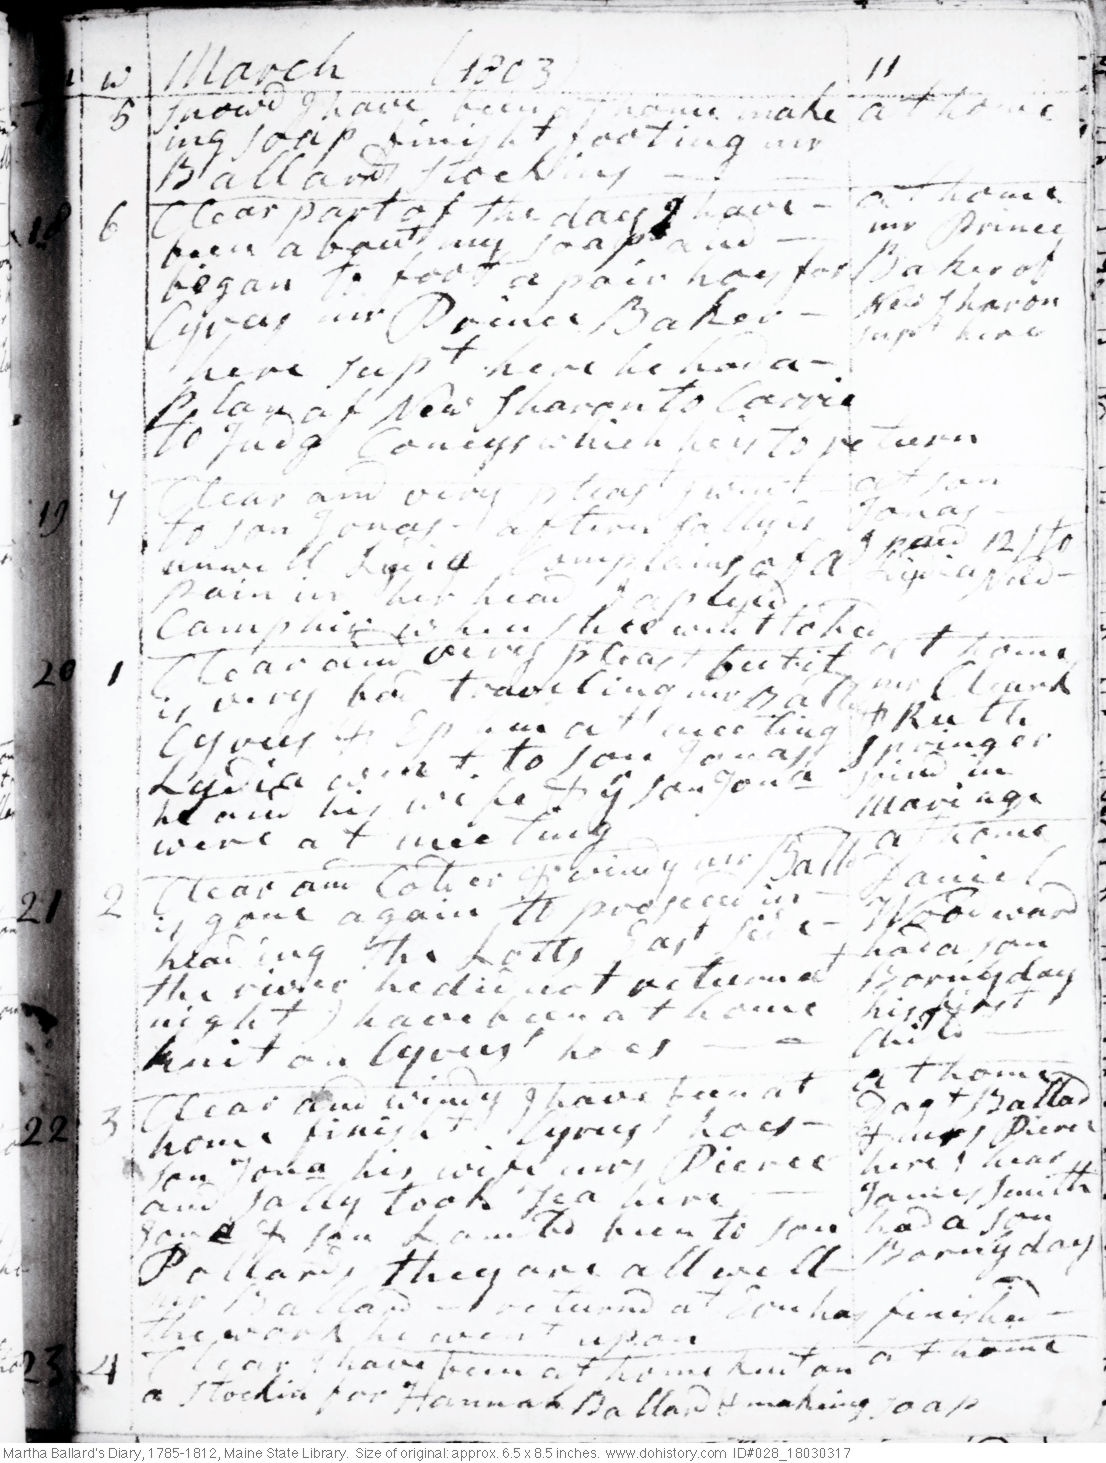 w March (1803) 11
5 snowd I have been at home make at home
ing soap finisht footing mr
Ballards Stockins
18 6 Clear part of the day I have at home
been about my soap and mr Prince
began to foot a pair hoys for Baker of
Cyrus mr Prince Baker New Sharon
here supt here he had a supt here
Plan of New Sharon to Carrie
to Judg Coneys which he is to return
19 7 Clear and very pleast I went at son
to son Jonas aftern Sally is Jonas
unwell Lydia Complains of a I paid 12 / to
Pain in her head I aplyd
Camphir when shee went to bed
20 1 Clear and very pleast but it at home
is very bad traveling mr Ball mr Cleark
Cyrus & Ephm at meeting & Ruth
Lydia went to son Jonas Springer
he and his wife & son Jona joind in
were at meeting Mariage
21 2 Clear and Coller & windy mr Ball at home
is gone again to proseed in Daniel
heading the Lotts East side Woodward
the river he did not returne had a son
night I have been at home Born ys day
knit on Cyrus' hoes his first
Child
22 3 Clear and windy I have been at at home
home finisht Cyrus' hoes Dagt Ballad
son Jona his wife mrs Pierce & mrs Pierce
and Sally took Tea here here I hear
Jona & son Lambd been to son James Smith
Pollards they are all well had a son
mr Ballard returnd at Eve has finished Born ys day
the work he went upon
23 4 Clear I have been at home knit on at home
a stockin for Hannah Ballard & making soap
Martha Ballard's Diary, 1785-1812, Maine State Library. Size of original: approx. 6.5 x 8.5 inches. www.dohistory.com ID#028_18030317